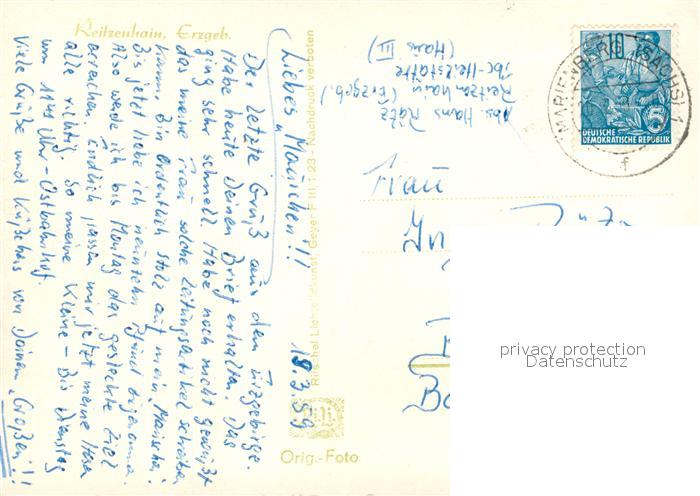 Reitzenhain, Erzgeb.
18.3.59
Liebes "Mäuschen"!!
Der letzte Gruß aus dem Erzgebirge.
Habe heute Deinen Brief erhalten. Das
ging sehr schnell. Habe noch nicht gewußt
das meine Frau solche Zeitungsartikel schreiben
kann. Bin ordentlich stolz auf mein "Mäuschen".
Bis jetzt habe ich neunzehn Pfund zugenomm.
Also werde ich bis Montag das gesteckte Ziel
erreichen. Endlich passen mir jetzt meine Hosen
alle richtig. So meine Kleine - Bis Dienstag
um 11 Uhr - Ostbahnhof.
Viele Grüße und Küßchens von Deinem "Großen"!!
Nachdruck verboten
Geyer F III 1 23
Orig.-Foto
Abs. Hans Rätz
Reitzenhain (Erzgeb.)
Tbc-Heilstätte
(Haus III)
Frau
MARIENBERG (SACHS) 1
f
10
5
DEUTSCHE
DEMOKRATISCHE REPUBLIK
privacy protection
Datenschutz